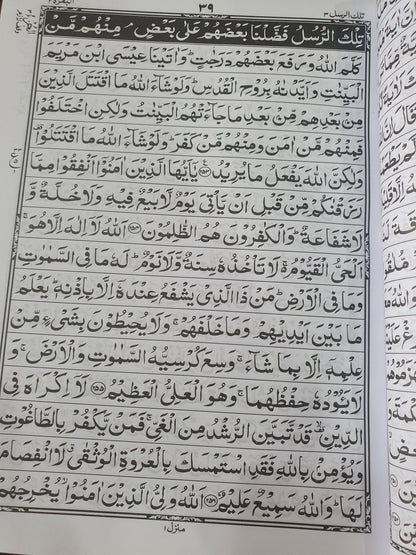 تلك الرسل ٣
٣٩
البقرة ٢
تِلْكَ الرُّسُلُ فَضَّلْنَا بَعْضَهُمْ عَلٰى بَعْضٍ ۘ مِنْهُمْ مَّنْ
كَلَّمَ اللّٰهُ وَرَفَعَ بَعْضَهُمْ دَرَجٰتٍ ؕ وَاٰتَيْنَا عِيْسَى ابْنَ مَرْيَمَ
الْبَيِّنٰتِ وَاَيَّدْنٰهُ بِرُوْحِ الْقُدُسِ ؕ وَلَوْ شَآءَ اللّٰهُ مَا اقْتَتَلَ الَّذِيْنَ
مِنْۢ بَعْدِهِمْ مِّنْۢ بَعْدِ مَا جَآءَتْهُمُ الْبَيِّنٰتُ وَلٰكِنِ اخْتَلَفُوْا
فَمِنْهُمْ مَّنْ اٰمَنَ وَمِنْهُمْ مَّنْ كَفَرَ ؕ وَلَوْ شَآءَ اللّٰهُ مَا اقْتَتَلُوْا ۟
وَلٰكِنَّ اللّٰهَ يَفْعَلُ مَا يُرِيْدُ ﴿۲۵۳﴾ يٰۤاَيُّهَا الَّذِيْنَ اٰمَنُوْۤا اَنْفِقُوْا مِمَّا
رَزَقْنٰكُمْ مِّنْ قَبْلِ اَنْ يَّاْتِيَ يَوْمٌ لَّا بَيْعٌ فِيْهِ وَلَا خُلَّةٌ وَّ
لَا شَفَاعَةٌ ؕ وَالْكٰفِرُوْنَ هُمُ الظّٰلِمُوْنَ ﴿۲۵۴﴾ اَللّٰهُ لَاۤ اِلٰهَ اِلَّا هُوَ ۚ
اَلْحَيُّ الْقَيُّوْمُ ۚ لَا تَاْخُذُهٗ سِنَةٌ وَّلَا نَوْمٌ ؕ لَهٗ مَا فِي السَّمٰوٰتِ
وَمَا فِي الْاَرْضِ ؕ مَنْ ذَا الَّذِيْ يَشْفَعُ عِنْدَهٗۤ اِلَّا بِاِذْنِهٖ ؕ يَعْلَمُ
مَا بَيْنَ اَيْدِيْهِمْ وَمَا خَلْفَهُمْ ۚ وَلَا يُحِيْطُوْنَ بِشَيْءٍ مِّنْ
عِلْمِهٖۤ اِلَّا بِمَا شَآءَ ۚ وَسِعَ كُرْسِيُّهُ السَّمٰوٰتِ وَالْاَرْضَ ۚ وَ
لَا يَـُٔوْدُهٗ حِفْظُهُمَا ۚ وَهُوَ الْعَلِيُّ الْعَظِيْمُ ﴿۲۵۵﴾ لَاۤ اِكْرَاهَ فِي
الدِّيْنِ ۟ۙ قَدْ تَّبَيَّنَ الرُّشْدُ مِنَ الْغَيِّ ۚ فَمَنْ يَّكْفُرْ بِالطَّاغُوْتِ
وَيُؤْمِنْۢ بِاللّٰهِ فَقَدِ اسْتَمْسَكَ بِالْعُرْوَةِ الْوُثْقٰى ۗ لَا انْفِصَامَ
لَهَا ؕ وَاللّٰهُ سَمِيْعٌ عَلِيْمٌ ﴿۲۵۶﴾ اَللّٰهُ وَلِيُّ الَّذِيْنَ اٰمَنُوْا ۙ يُخْرِجُهُمْ
منزل ١